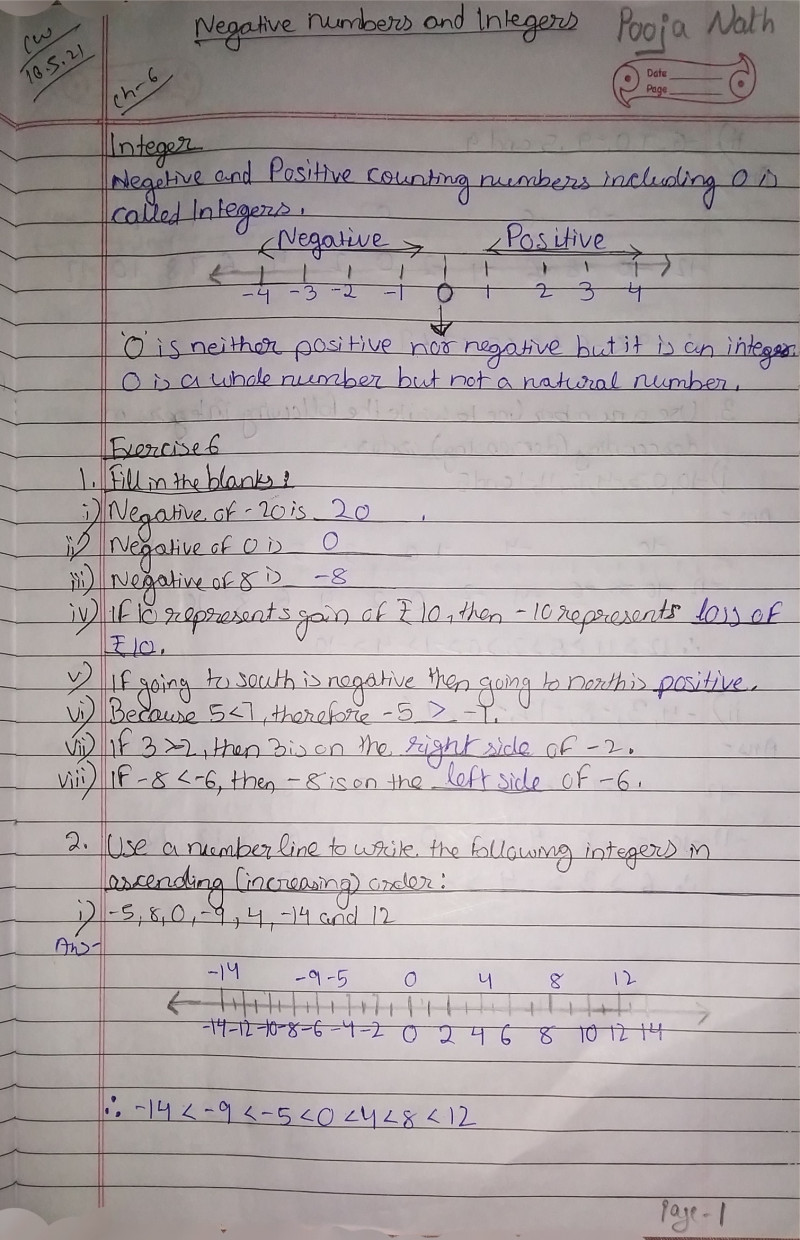 Negative numbers and Integers
Pooja Nath
CW
18.5.21
Date
Page
Ch-6
Integer
Negetive and Positive counting numbers including 0 is
called Integers.
Negative Positive
-4 -3 -2 -1 0 1 2 3 4
'0' is neither positive nor negative but it is an integer.
0 is a whole number but not a natural number.
Exercise 6
1. Fill in the blanks :
i) Negative of -20 is 20.
ii) Negative of 0 is 0
iii) Negative of 8 is -8
iv) If 10 represents gain of ₹10, then -10 represents loss of
₹10.
v) If going to south is negative then going to north is positive.
vi) Because 5<7, therefore -5 > -7.
vii) If 3 >-2, then 3 is on the right side of -2.
viii) If -8 <-6, then -8 is on the left side of -6.
2. Use a number line to write the following integers in
ascending (increasing) order:
i) -5, 8, 0, -9, 4, -14 and 12
Ans-
-14 -9 -5 0 4 8 12
-14 -12 -10 -8 -6 -4 -2 0 2 4 6 8 10 12 14
∴ -14 < -9 < -5 < 0 < 4 < 8 < 12
Page-1